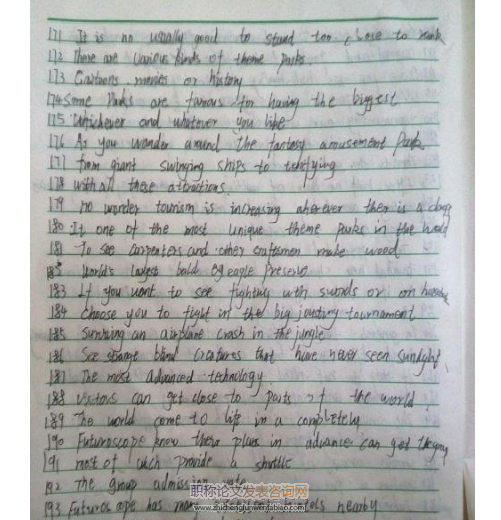 171 It is no usually good to stand too close to rank
172 There are various kinds of theme parks.
173 Cartoons movies or history
174 Some Parks are famous for having the biggest
175 Whichever and whatever you like
176 As you wander around the fantasy amusement Parks.
177 from giant swinging ships to terrifying
178 with all these attractions.
179 no wonder tourism is increasing wherever ther is a
180 It one of the most unique theme Parks in the world
181 To see carpenters and other craftsmen make wood.
World's largest bald eagle Preserve
183 If you want to see fighting with swords or on
184 choose you to fight in the big jousting tournament
185 Surviving an airplane crash in the jungle
186 See strange blind creatures that have never seen sunlight
187 The most advanced technology
188 visitors can get close to parts of the world
189 The world come to life in a completely
190 Futuroscope know there plans in advance can get
191 most of wich provide a shuttle
192 The group admission rate
193 Futuroscope has many hotels nearby
职称论文发表咨询网
www.zhichenglunwenfabiao.com